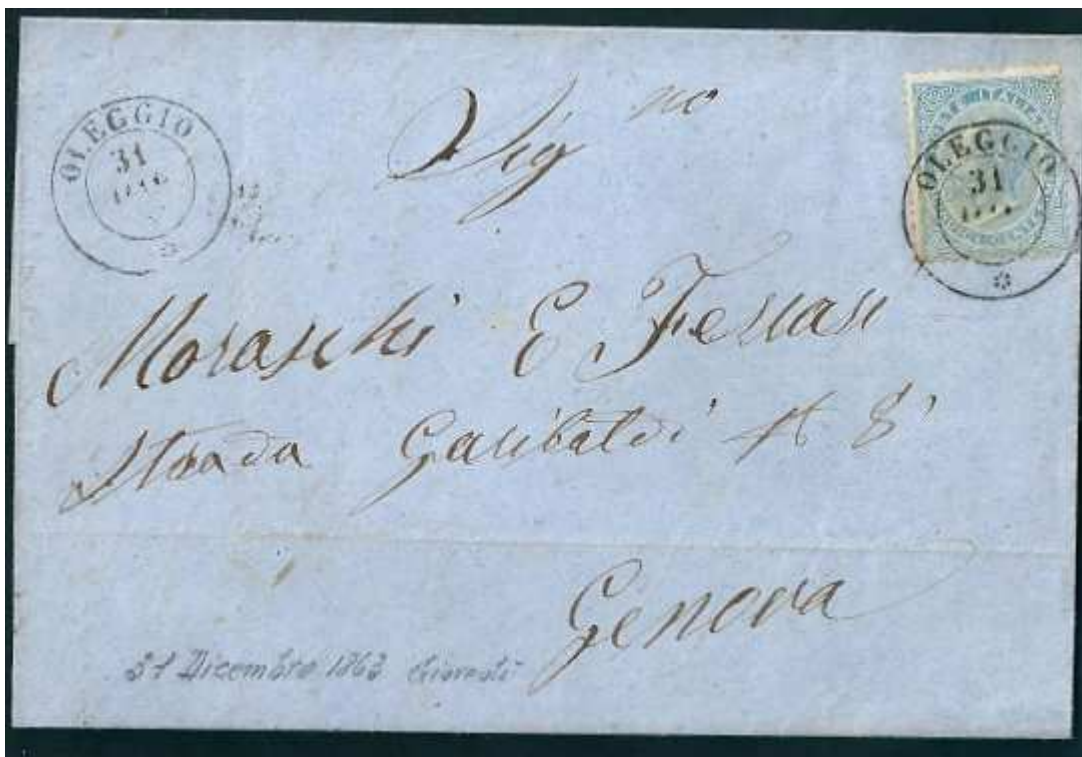 OLEGGIO
31
Sig
OLEGGIO
31
Moraschi E Ferrari
Strada Garibaldi N 8
Genova
31 Dicembre 1863